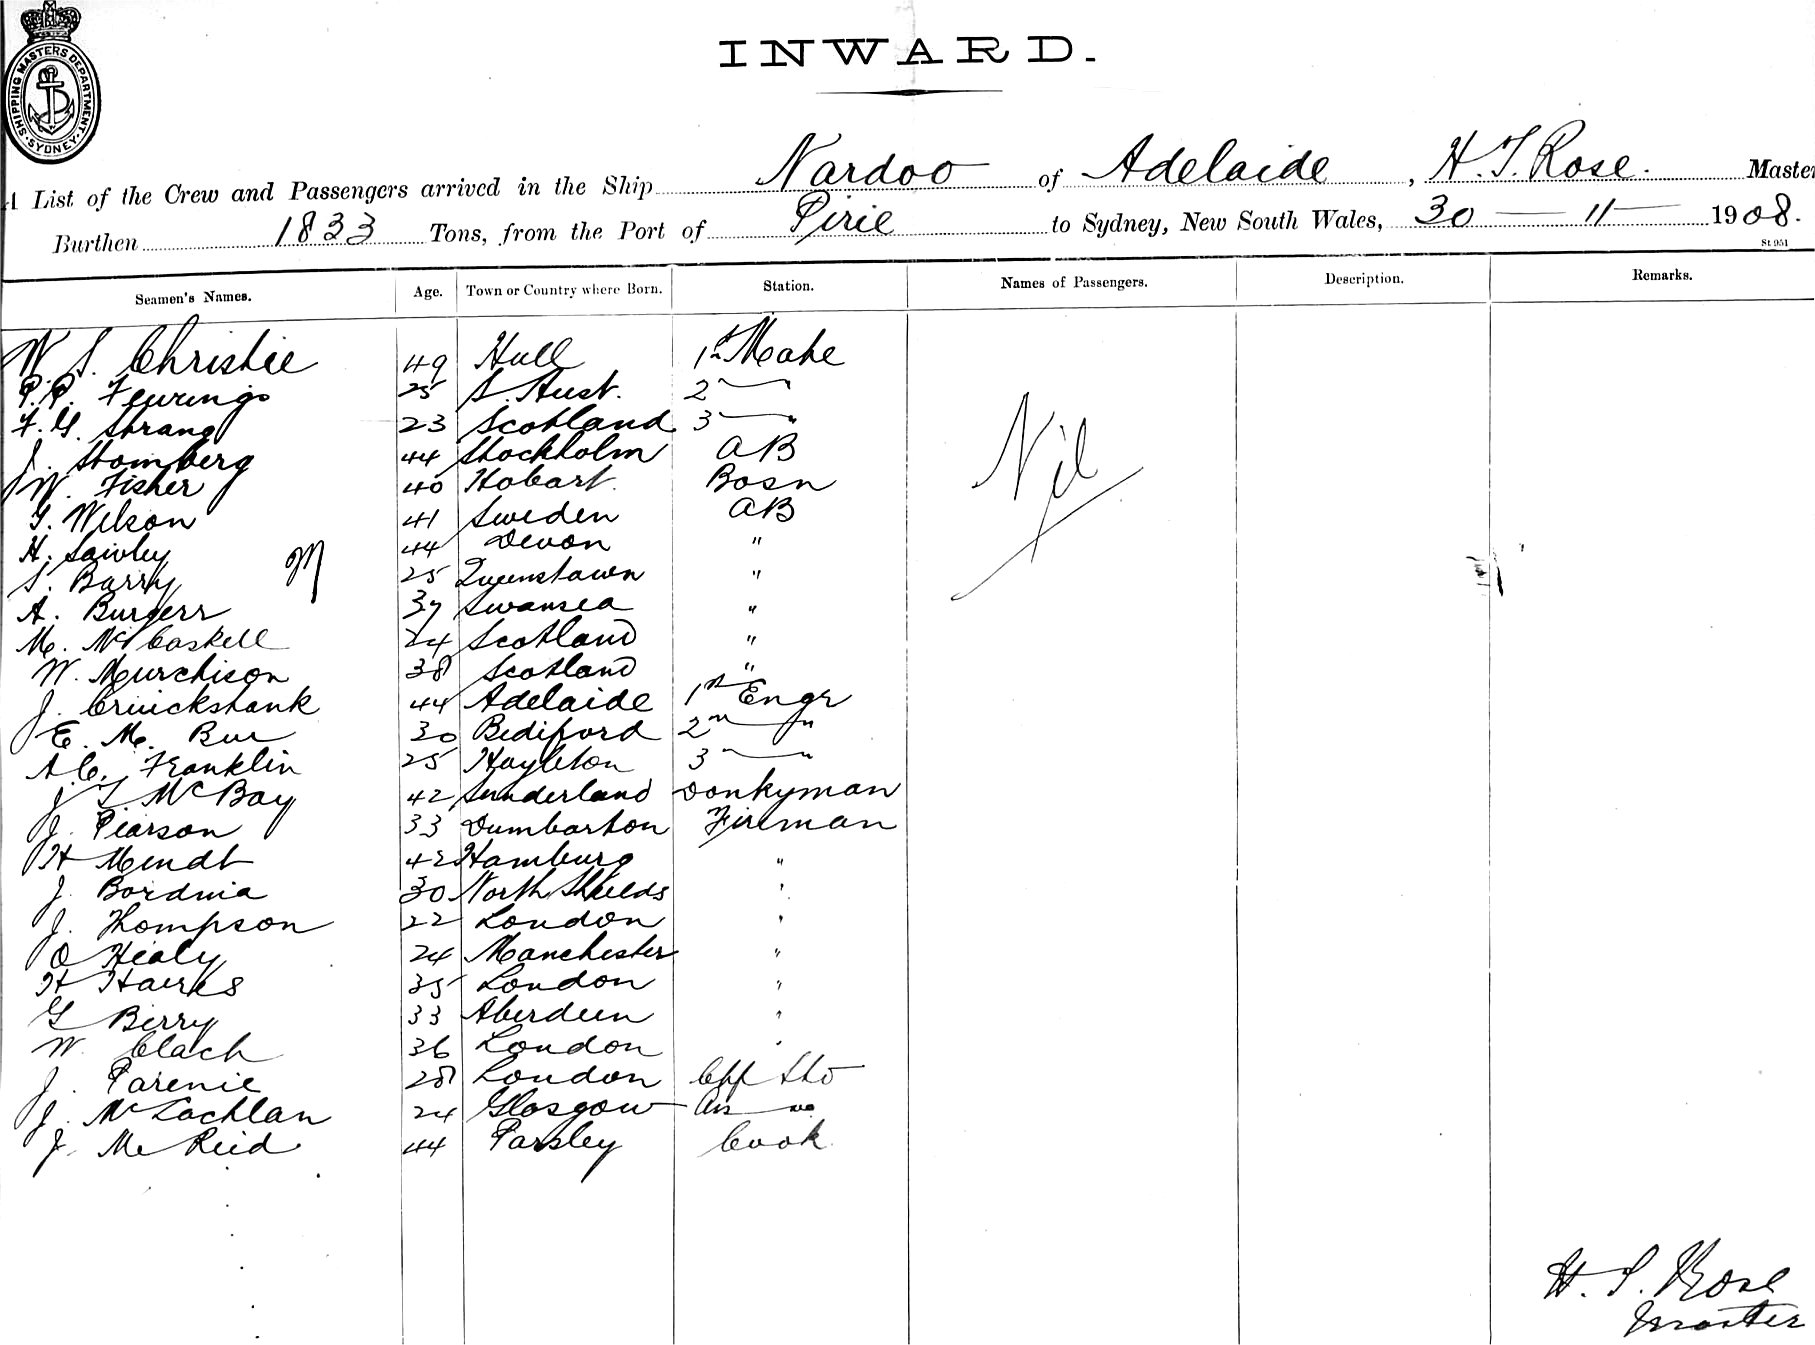 SHIPPING MASTERS DEPARTMENT · SYDNEY ·
INWARD.
A List of the Crew and Passengers arrived in the Ship Nardoo of Adelaide, H. T. Rose. Master
Burthen 1833 Tons, from the Port of Pirie to Sydney, New South Wales, 30 — 11 — 1908.
St 951
Seamen's Names. Age. Town or Country where Born. Station. Names of Passengers. Description. Remarks.
W. S. Christie 49 Hull 1st Mate
P. P. 25 S. Aust. 2 — "
F. G. Strang 23 Scotland 3 — "
J. Stomberg 44 Stockholm AB
W. Fisher 40 Hobart. Bosn
Nil
G. Wilson 41 Sweden AB
H. 44 Devon "
S. Barry M 25 Queenstown "
A. Burgess 37 Swansea "
M. McCaskell 24 Scotland "
W. Murchison 38 Scotland "
J. Cruickshank 44 Adelaide 1st Engr
E. M. 30 Bediford 2nd — "
A. C. Franklin 25 3 — "
J. T. McBay 42 Sunderland Donkyman
J. Pearson 33 Dumbarton Fireman
H Mendt 42 Hamburg "
J. 30 North Shields "
J. Thompson 22 London "
O Healy 24 Manchester "
H 35 London "
G Berry 33 Aberdeen "
W. Clach 36 London "
J. Parenie 28 London
J. McLachlan 24 Glasgow
J. Mc Reid 44 Parsley Cook
H. T. Rose
Master